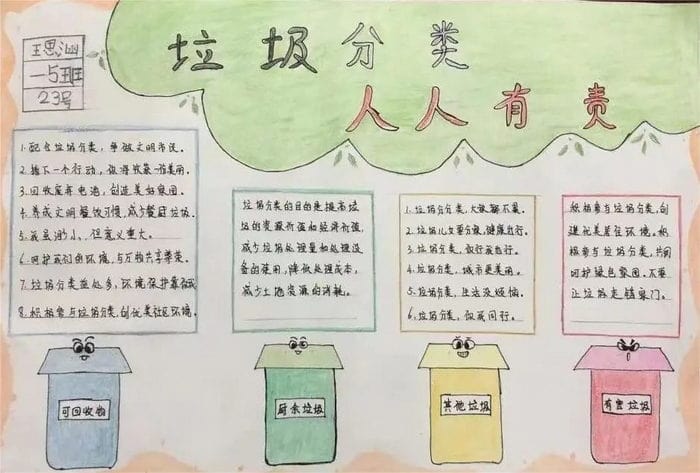 王思汕
一5班
23号
垃圾分类
人人有责
1.配合垃圾分类,争做文明市民。
2.捡下一个行动,
3.回收废弃电池,创造美好家园。
4.养成文明餐饮习惯,减少餐厨垃圾。
5.我虽渺小,但意义重大。
6.呵护我们的环境,与万物共享繁荣。
7.垃圾分类益处多,环境保护靠你我
8.积极参与垃圾分类,创优美社区环境。
垃圾分类的目的是提高垃
圾的资源价值和经济价值,
减少垃圾处理量和处理设
备的使用,降低处理成本,
减少土地资源的消耗。
1.垃圾分分类,大家都不累。
2.垃圾儿女要分类,健康
3.垃圾分类,你行我也行。
4.垃圾分类,城市更美用。
5.垃圾分类,生活没烦恼。
6.垃圾分类,你我同行。
积极参与垃圾分类,创
建优美居住环境。积
极参与垃圾分类,共同
呵护绿色家园。不要
让垃圾走错家门。
可回收物
厨余垃圾
其他垃圾
有害垃圾